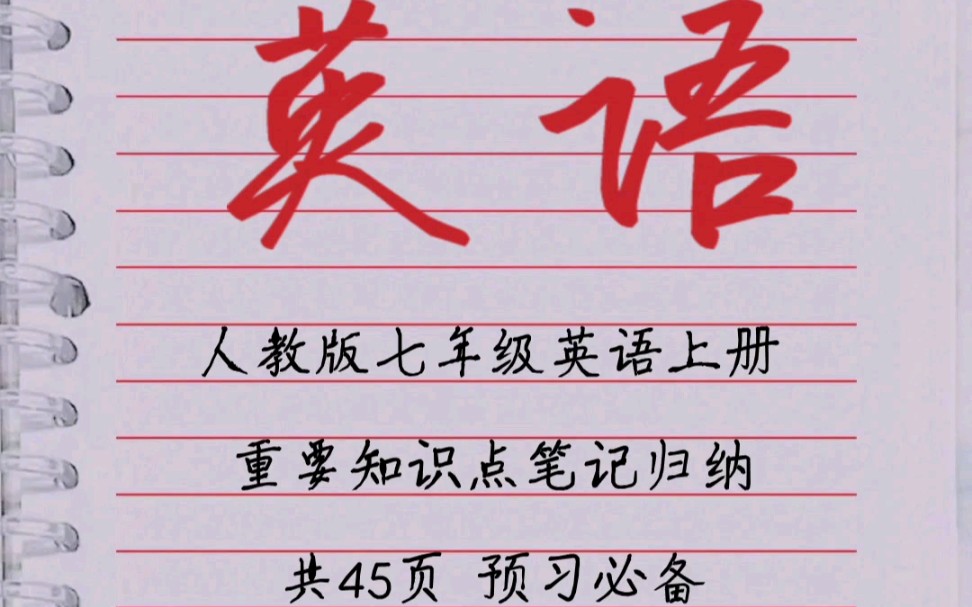 英语
人教版七年级英语上册
重要知识点笔记归纳
共45页 预习必备